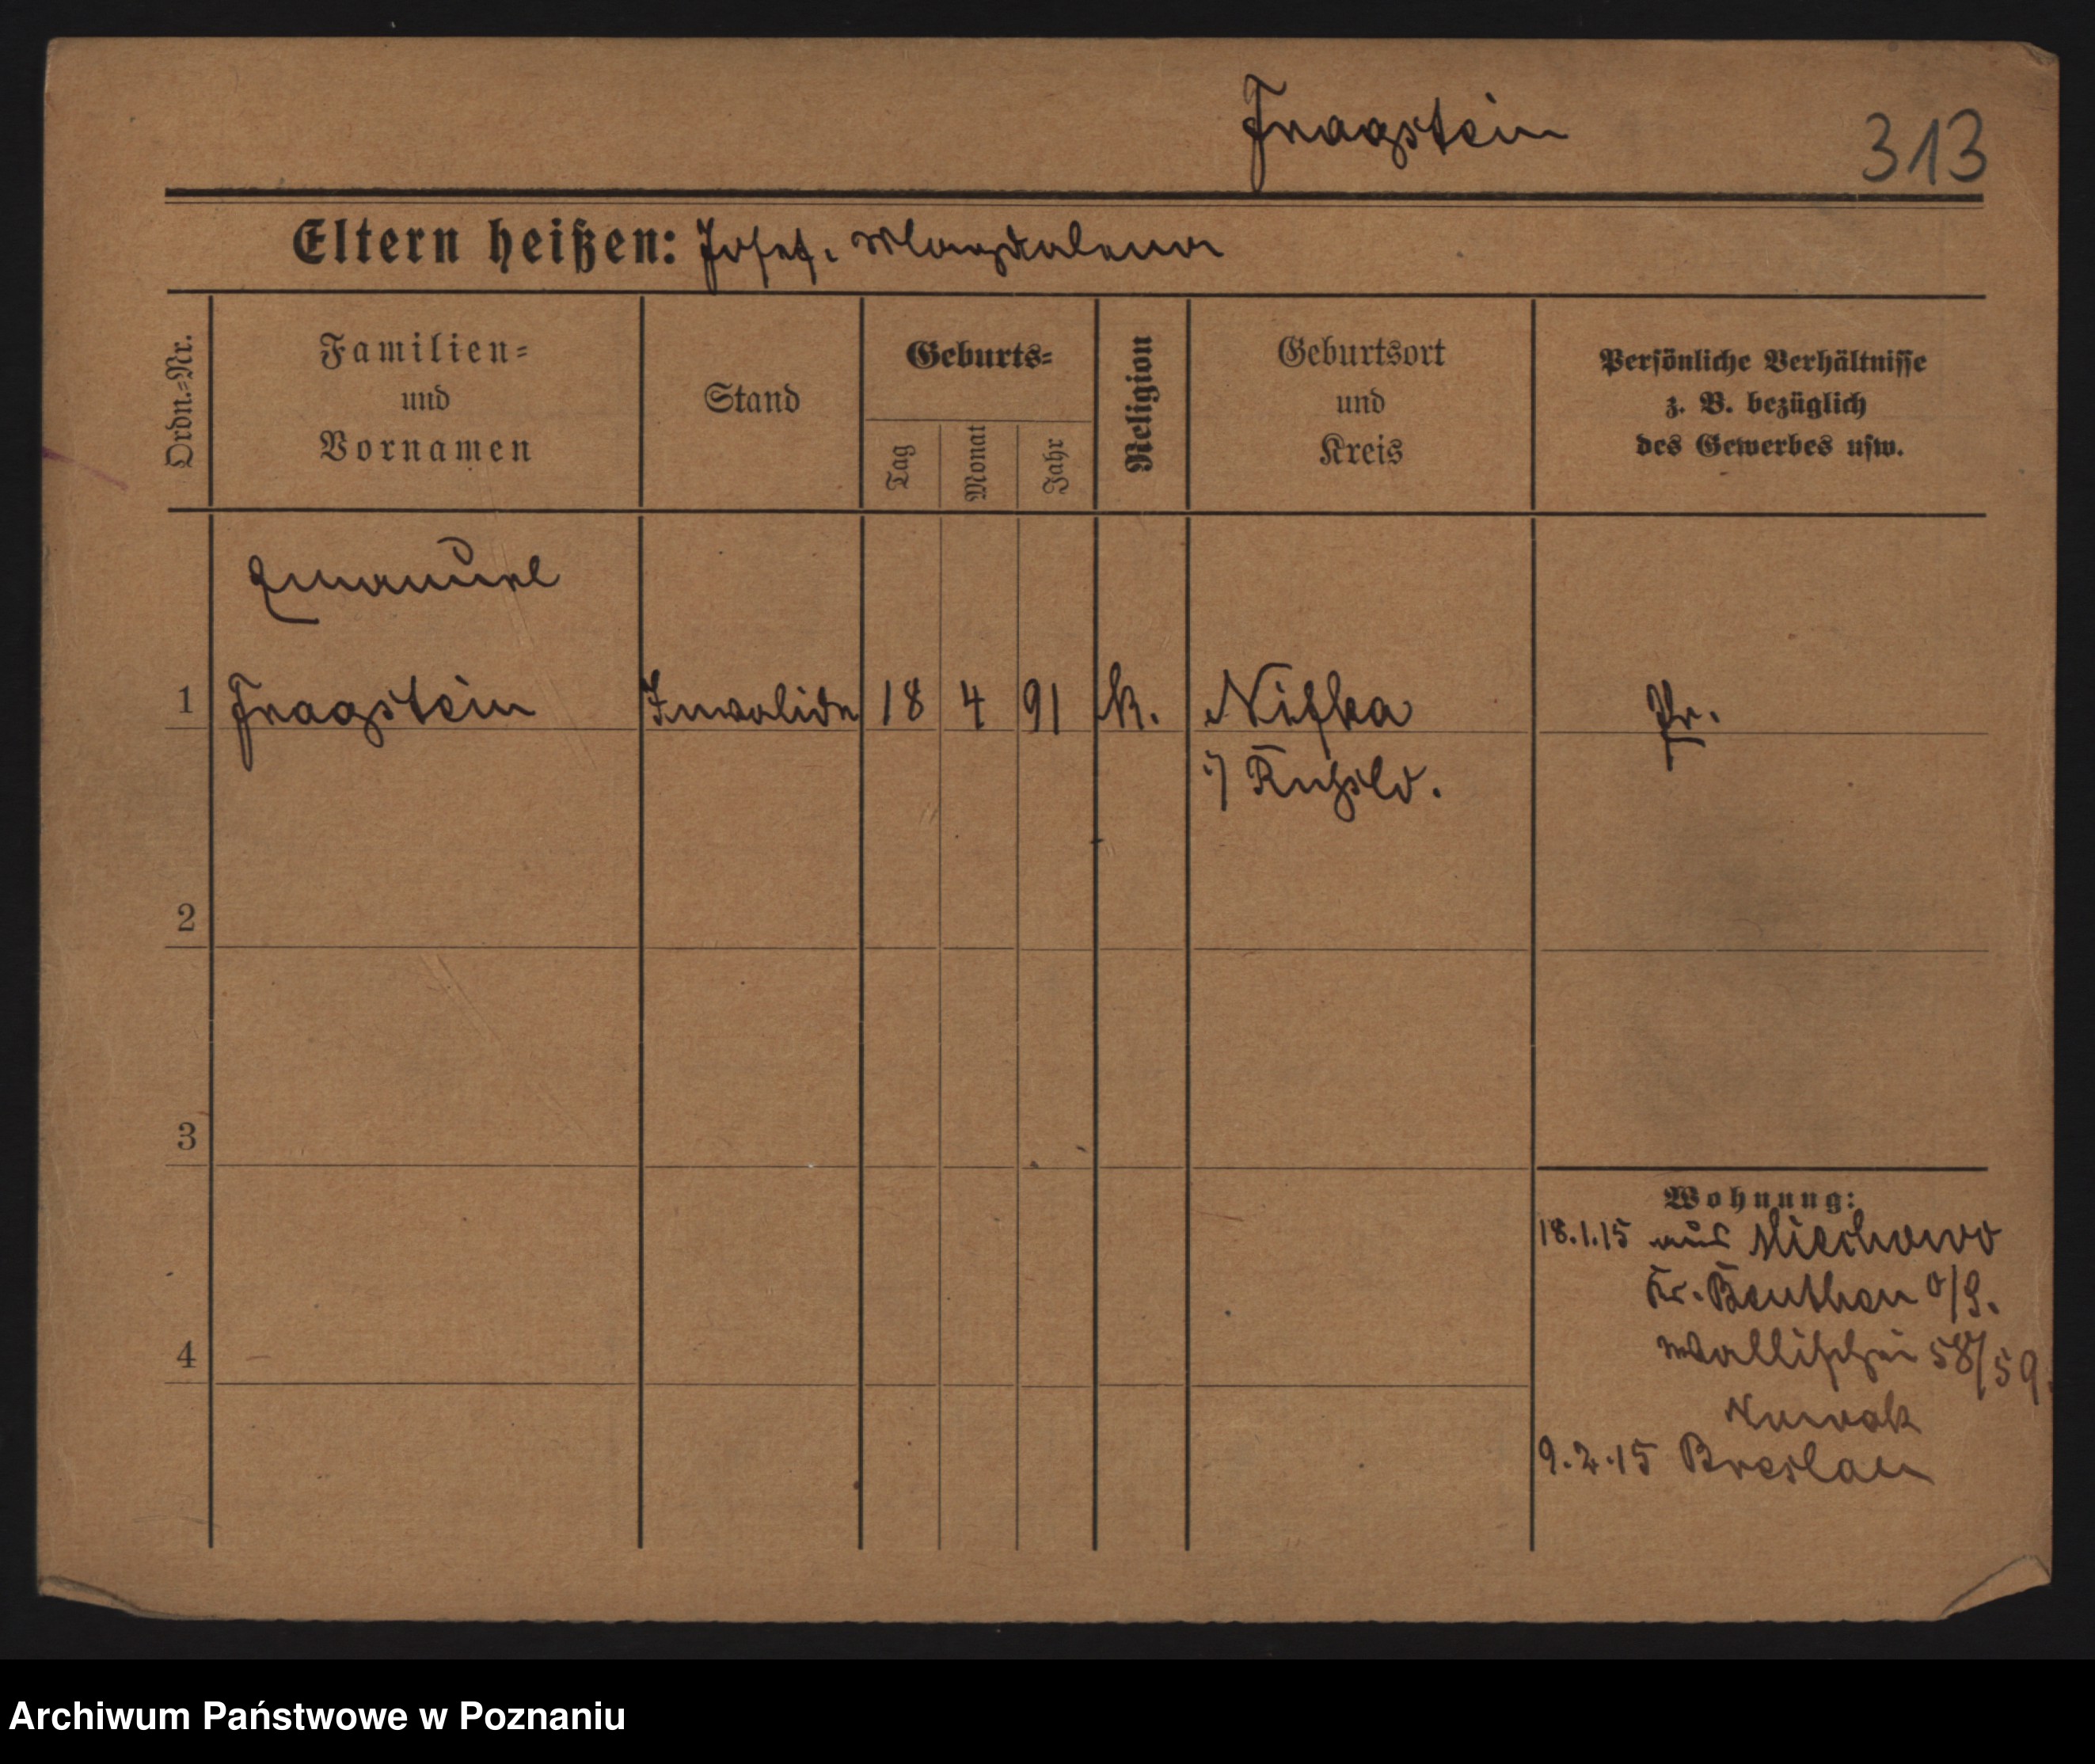 Fragstein
313
Eltern heißen: Josef, Magdalena
Ordn.=Nr.
Familien=
und
Vornamen
Stand
Geburts=
Tag
Monat
Jahr
Religion
Geburtsort
und
Kreis
Persönliche Verhältnisse
z. B. bezüglich
des Gewerbes usw.
Emanuel
1 Fragstein Invalide 18 4 91 k. Nifka Pr.
i/ Rußld.
2
3
4
Wohnung:
18.1.15 aus Miechowo
Kr. Beuthen O/S.
Wallischei 58/59.
Nowak
9.2.15 Breslau
Archiwum Państwowe w Poznaniu